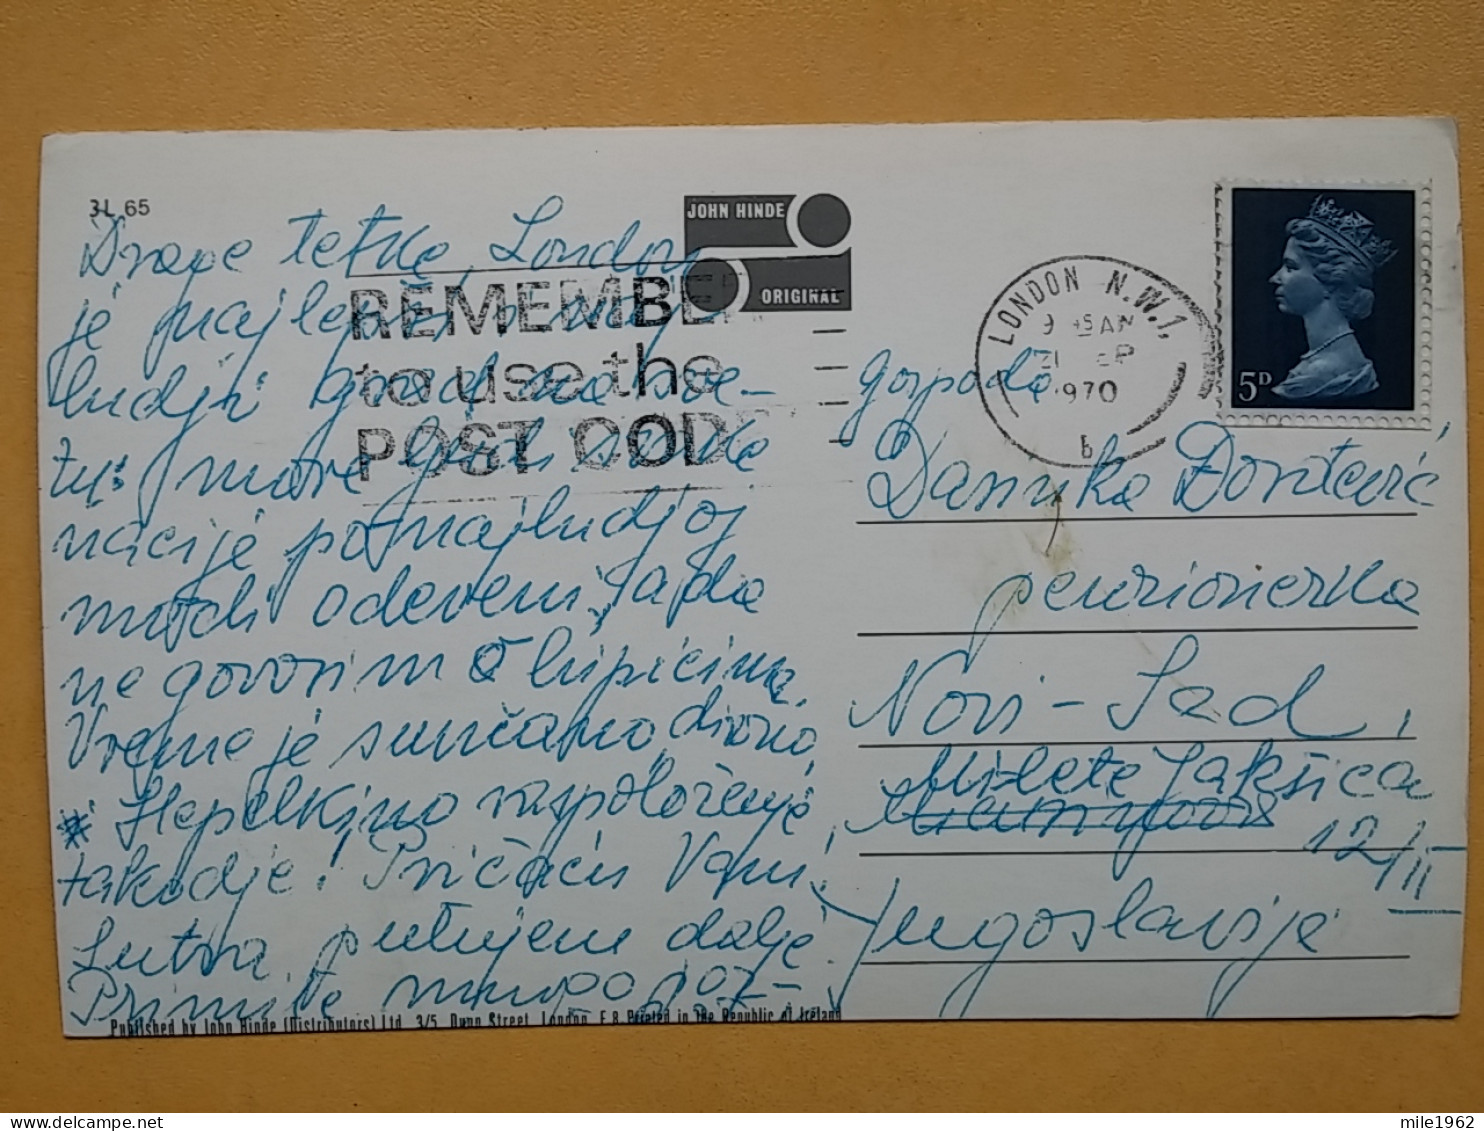 3L 65
JOHN HINDE
ORIGINAL
REMEMBE
to use the
POST COD
LONDON N.W.1.
9 45 AM
21 SEP
1970
b
5D
Drage tetke, London
je najlepši i naj
ludji grad na sve-
tu: more ljudi svake
nacije po najludjoj
modi odeveni, sada
ne govorim o hipicima.
Vreme je sunčano, divno,
raspoloženje
takodje! Pričaću Vam!
Sutra putujem dalje
Primite mnogo poz-
gospodja
Danuka Đorđević
penzionerka
Novi-Sad,
Milete Jakšića
12/II
Jugoslavija
Published by John Hinde (Distributors) Ltd., 3/5, Dunn Street, London, E.8. Printed in the Republic of Ireland
mile1962